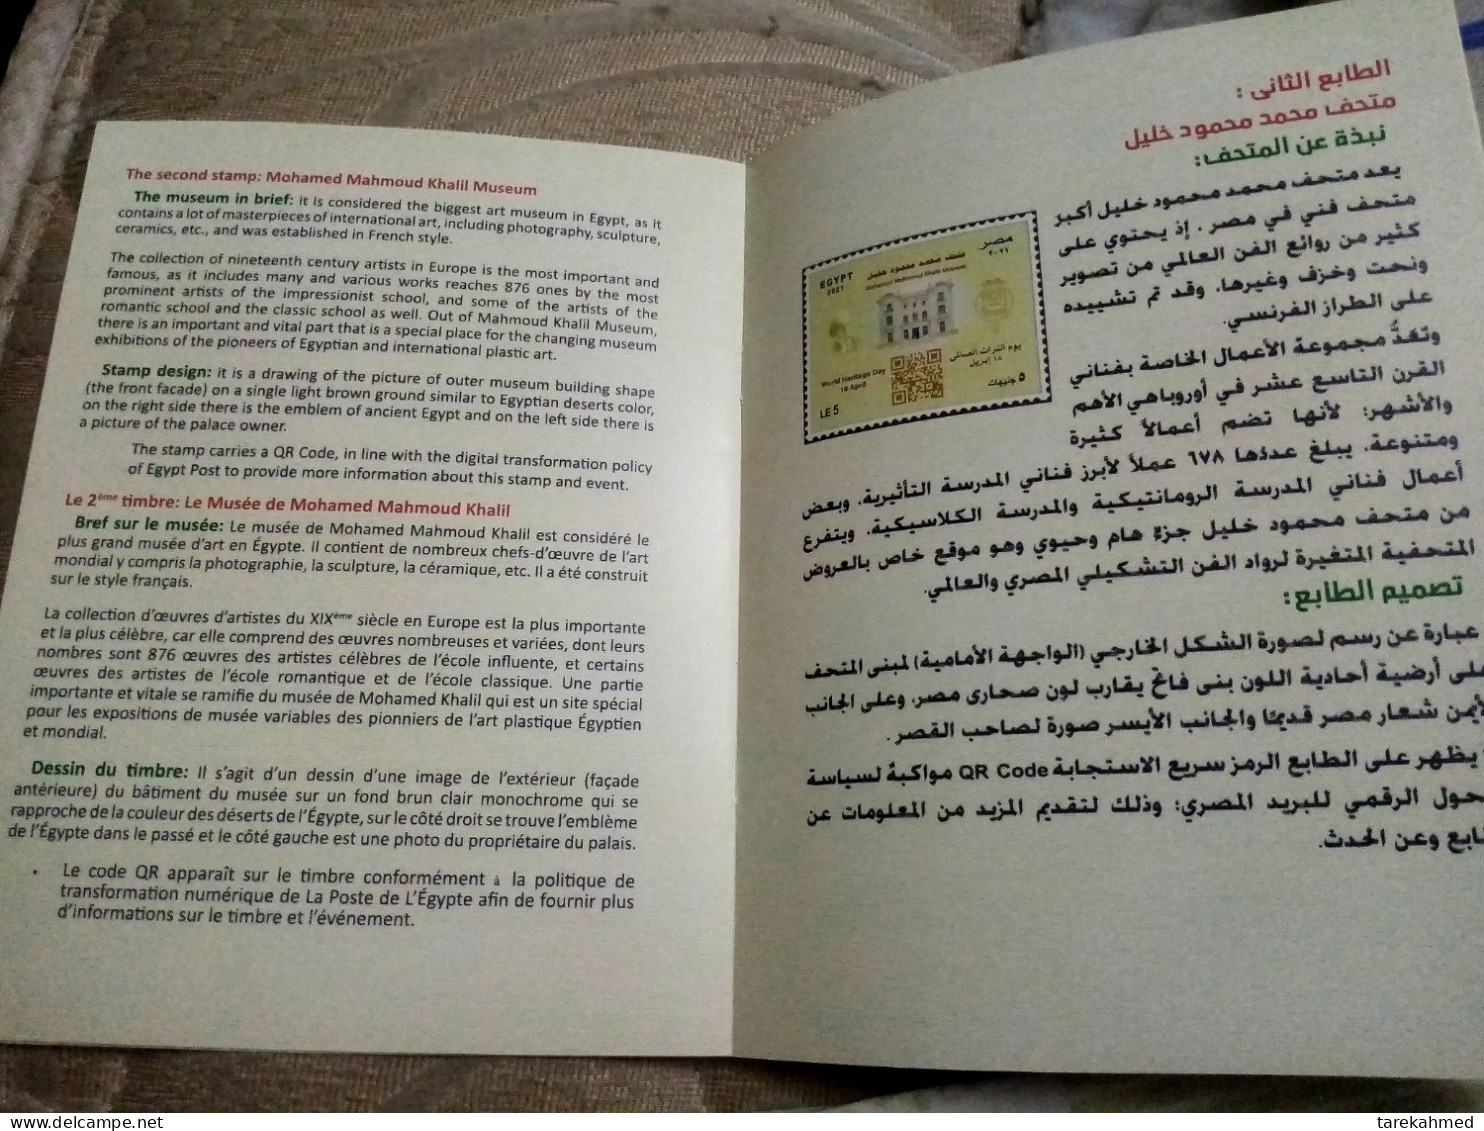 The second stamp: Mohamed Mahmoud Khalil Museum
The museum in brief: it is considered the biggest art museum in Egypt, as it
contains a lot of masterpieces of international art, including photography, sculpture,
ceramics, etc., and was established in French style.
The collection of nineteenth century artists in Europe is the most important and
famous, as it includes many and various works reaches 876 ones by the most
prominent artists of the impressionist school, and some of the artists of the
romantic school and the classic school as well. Out of Mahmoud Khalil Museum,
there is an important and vital part that is a special place for the changing museum
exhibitions of the pioneers of Egyptian and international plastic art.
Stamp design: it is a drawing of the picture of outer museum building shape
(the front facade) on a single light brown ground similar to Egyptian deserts color,
on the right side there is the emblem of ancient Egypt and on the left side there is
a picture of the palace owner.
The stamp carries a QR Code, in line with the digital transformation policy
of Egypt Post to provide more information about this stamp and event.
Le 2ème timbre: Le Musée de Mohamed Mahmoud Khalil
Bref sur le musée: Le musée de Mohamed Mahmoud Khalil est considéré le
plus grand musée d'art en Égypte. Il contient de nombreux chefs-d'œuvre de l'art
mondial y compris la photographie, la sculpture, la céramique, etc. Il a été construit
sur le style français.
La collection d'œuvres d'artistes du XIXème siècle en Europe est la plus importante
et la plus célèbre, car elle comprend des œuvres nombreuses et variées, dont leurs
nombres sont 876 œuvres des artistes célèbres de l'école influente, et certains
œuvres des artistes de l'école romantique et de l'école classique. Une partie
importante et vitale se ramifie du musée de Mohamed Khalil qui est un site spécial
pour les expositions de musée variables des pionniers de l'art plastique Égyptien
et mondial.
Dessin du timbre: Il s'agit d'un dessin d'une image de l'extérieur (façade
antérieure) du bâtiment du musée sur un fond brun clair monochrome qui se
rapproche de la couleur des déserts de l'Égypte, sur le côté droit se trouve l'emblème
de l'Égypte dans le passé et le côté gauche est une photo du propriétaire du palais.
• Le code QR apparaît sur le timbre conformément à la politique de
transformation numérique de La Poste de L'Égypte afin de fournir plus
d'informations sur le timbre et l'événement.
الطابع الثانى :
متحف محمد محمود خليل
نبذة عن المتحف:
يعد متحف محمد محمود خليل أكبر
متحف فني في مصر . إذ يحتوي على
كثير من روائع الفن العالمي من تصوير
ونحت وخزف وغيرها. وقد تم تشييده
على الطراز الفرنسي.
وتعدُّ مجموعة الأعمال الخاصة بفناني
القرن التاسع عشر في أوروباهي الأهم
والأشهر: لأنها تضم أعمالاً كثيرة
ومتنوعة. يبلغ عددها ٦٧٨ عملاً لأبرز فناني المدرسة التأثيرية. وبعض
أعمال فناني المدرسة الرومانتيكية والمدرسة الكلاسيكية. ويتفرع
من متحف محمود خليل جزءٌ هام وحيوي وهو موقع خاص بالعروض
المتحفية المتغيرة لرواد الفن التشكيلي المصري والعالمي.
تصميم الطابع:
عبارة عن رسم لصورة الشكل الخارجي (الواجهة الأمامية) لمبنى المتحف
على أرضية أحادية اللون بنى فاتح يقارب لون صحارى مصر. وعلى الجانب
الأيمن شعار مصر قديمًا والجانب الأيسر صورة لصاحب القصر .
يظهر على الطابع الرمز سريع الاستجابة QR Code مواكبةً لسياسة
حول الرقمي للبريد المصري: وذلك لتقديم المزيد من المعلومات عن
ابع وعن الحدث.
EGYPT
2021
مصر
٢٠٢١
متحف محمد محمود خليل
Mohamed Mahmoud Khalil Museum
يوم التراث العالمى
١٨ أبريل
World Heritage Day
18 April
LE 5
٥ جنيهات
delcampe.net
tarekahmed